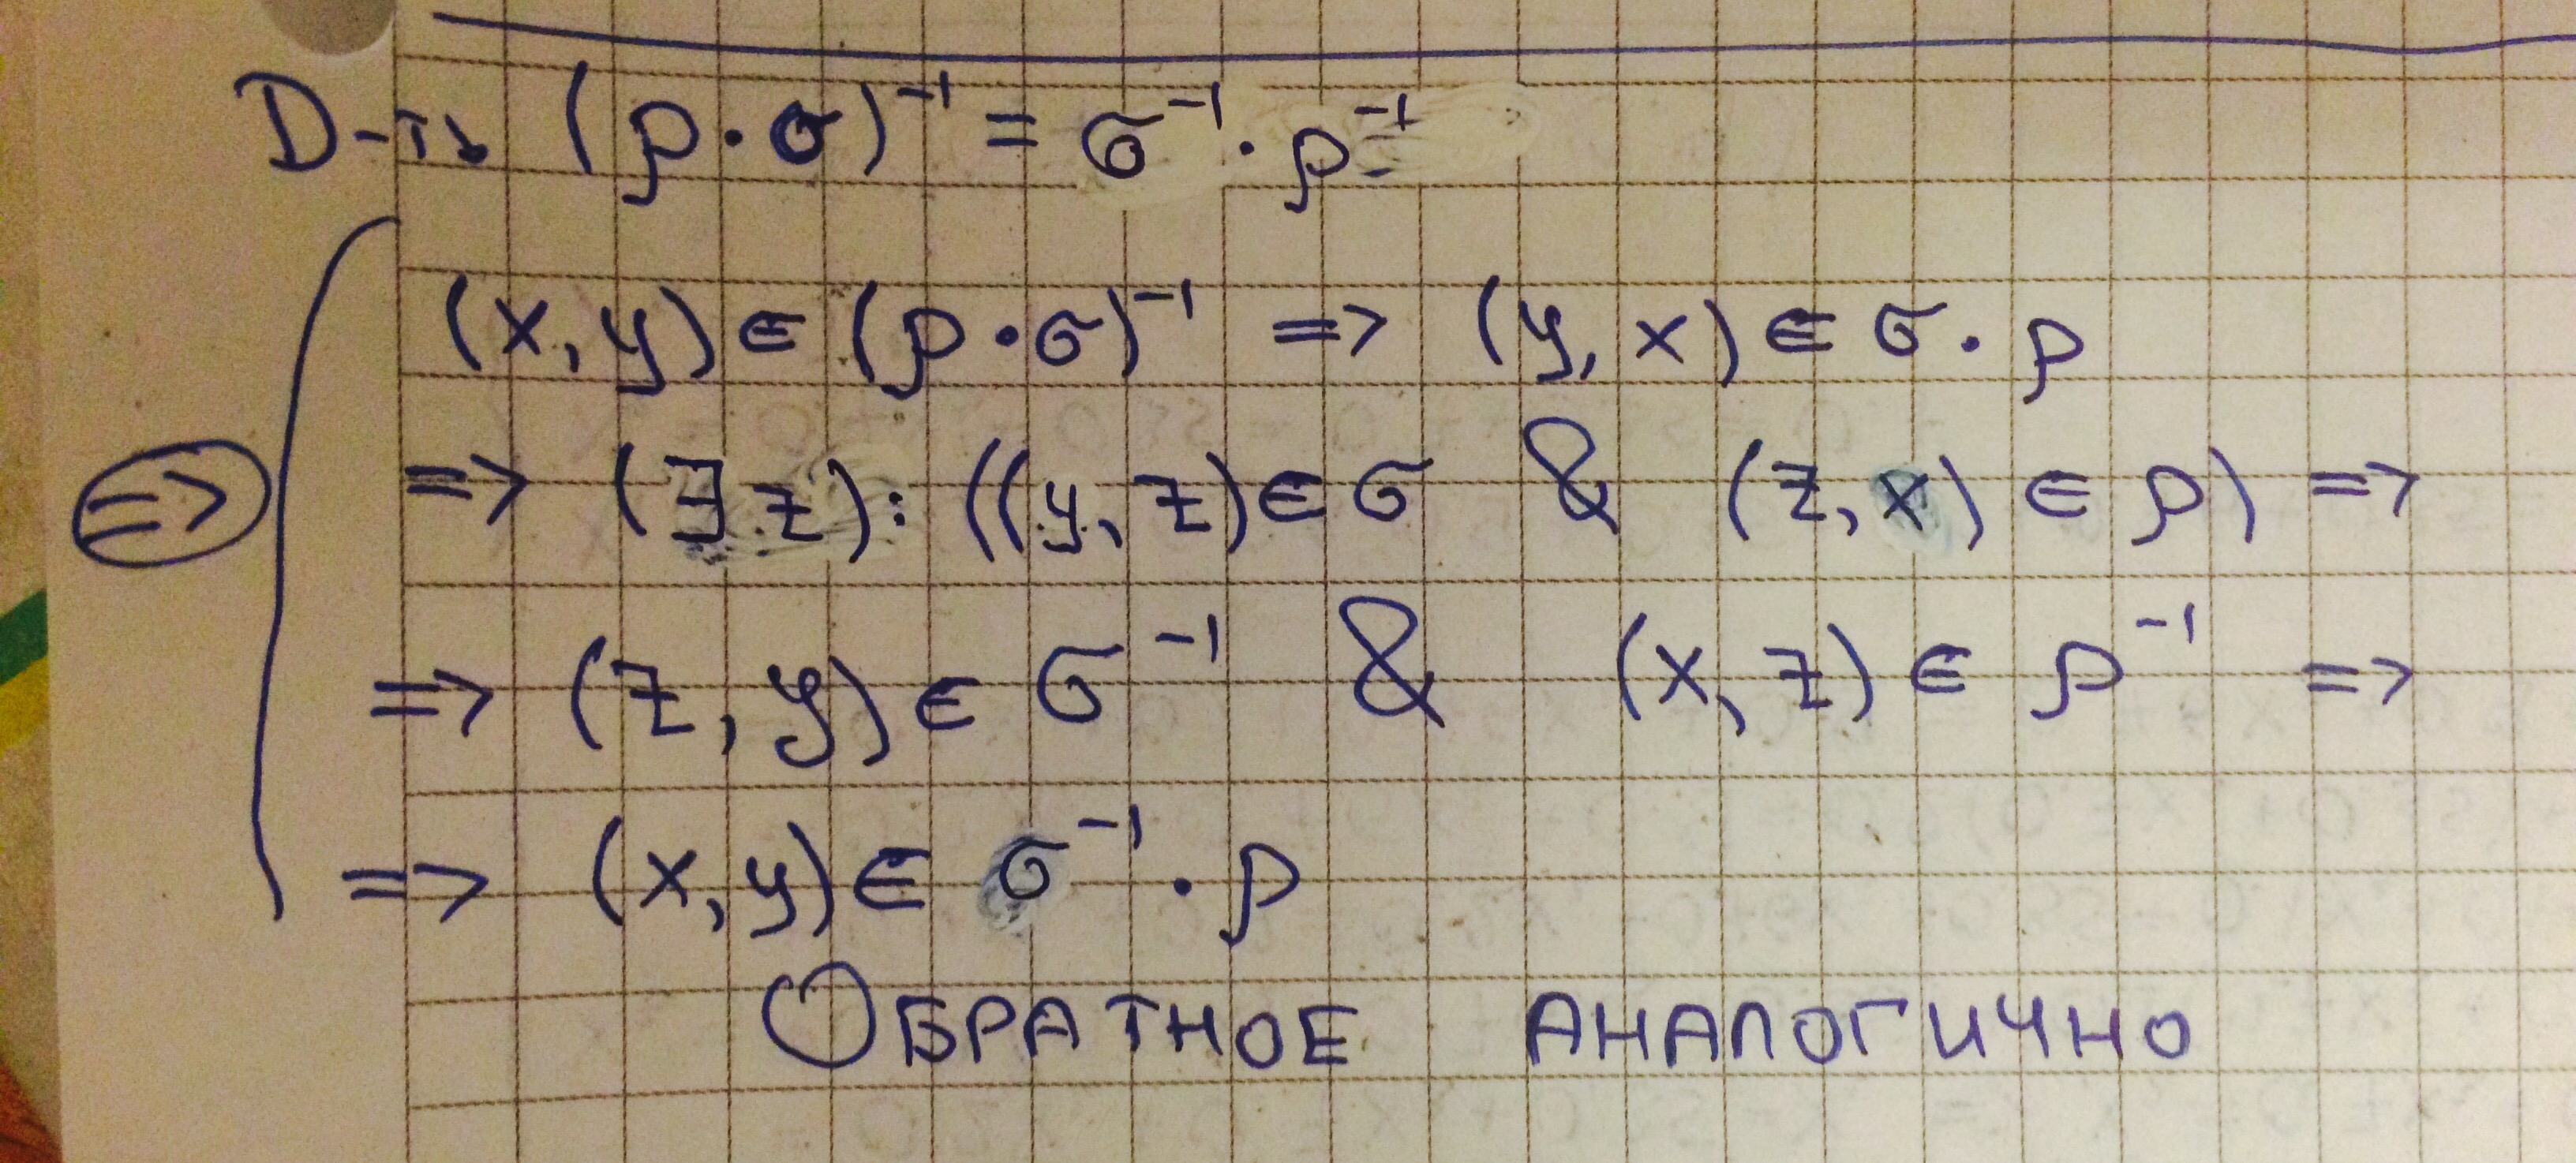 D-ть (ρ·σ)⁻¹ = σ⁻¹·ρ⁻¹
(x,y)∈(ρ·σ)⁻¹ => (y,x)∈σ·ρ
=> (∃z): ((y,z)∈σ & (z,x)∈ρ) =>
=>
=> (z,y)∈σ⁻¹ & (x,z)∈ρ⁻¹ =>
=> (x,y)∈σ⁻¹·ρ
ОБРАТНОЕ АНАЛОГИЧНО